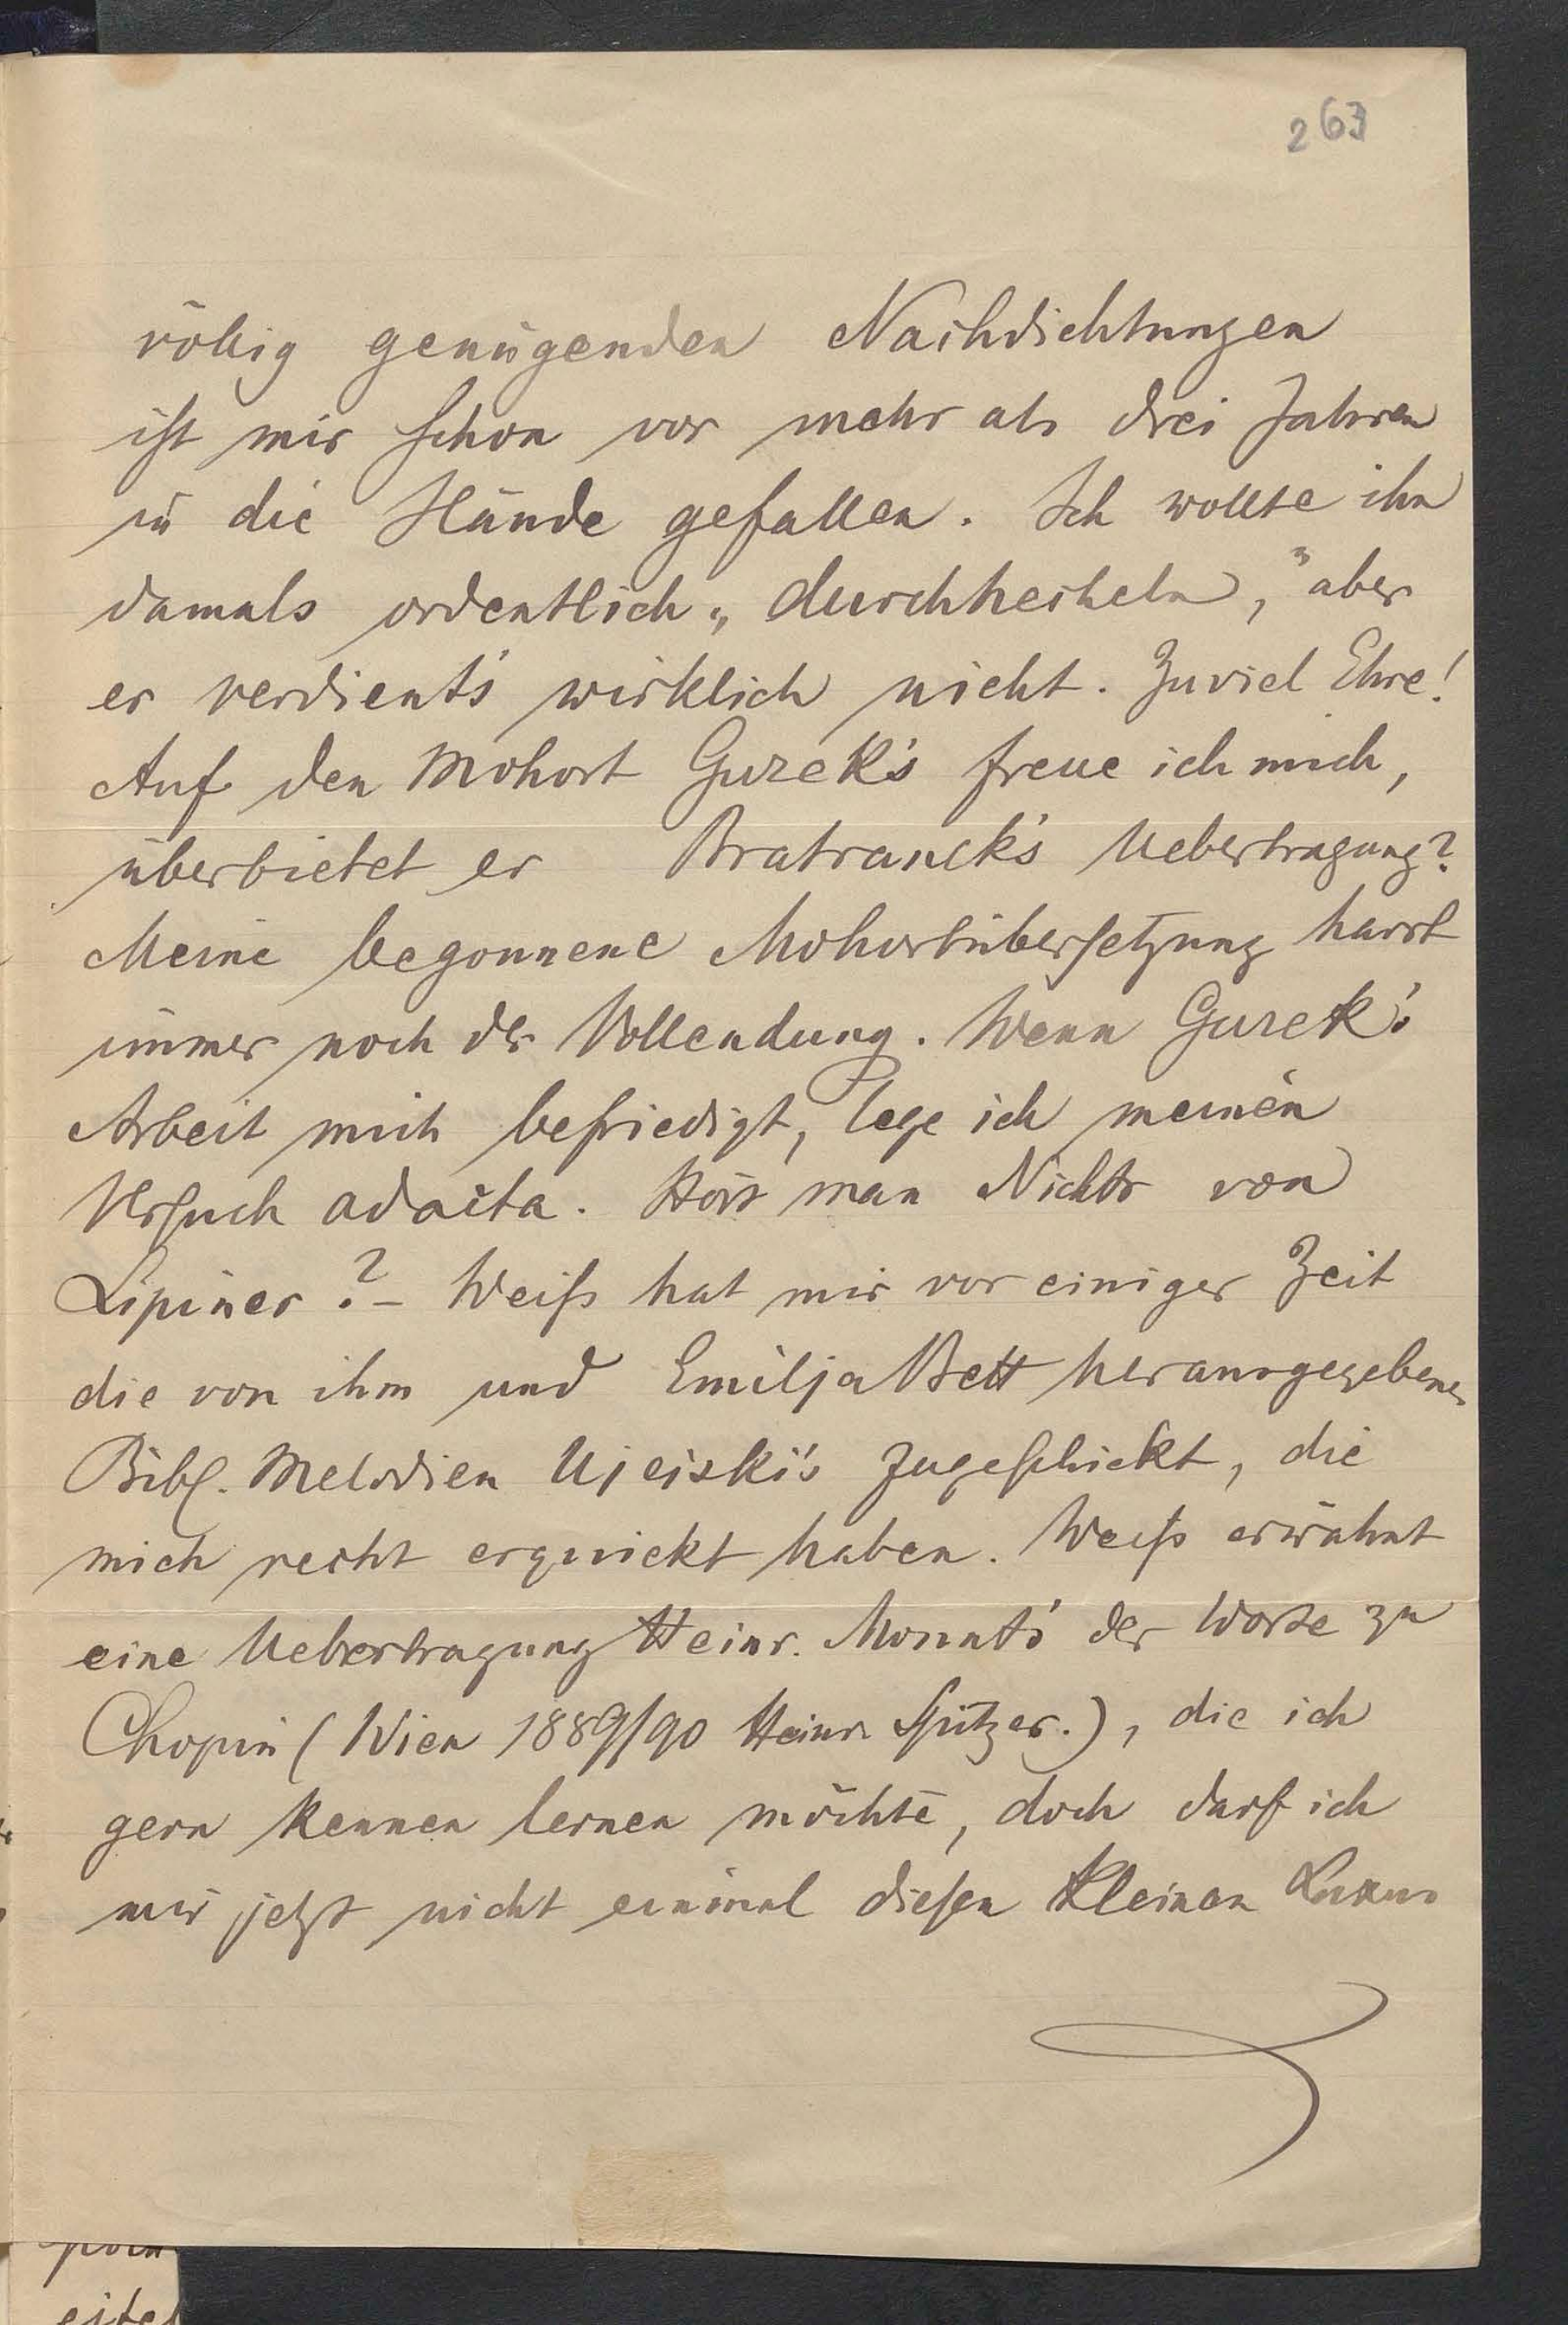 263
völlig genügenden Nachdichtungen
ist mir schon vor mehr als drei Jahren
in die Hände gefallen. Ich wollte ihn
damals ordentlich „durchhecheln,“ aber
er verdient's wirklich nicht. Zuviel Ehre!
Auf den Mohort Gurek's freue ich mich,
überbietet er Bratranek's Uebertragung?
Meine begonnene Mohortübersetzung harrt
immer noch der Vollendung. Wenn Gurek's
Arbeit mich befriedigt, lege ich meinen
Versuch ad acta. Hört man Nichts von
Lipiner? – Weiss hat mir vor einiger Zeit
die von ihm und Emilja Bett herausgegebenen
Bibl. Melodien Ujejski's zugeschickt, die
mich recht erquickt haben. Weiss erwähnt
eine Uebertragung Heinr. Monnt's der Worte zu
Chopin (Wien 1889/90 Heinr. Spitzer.), die ich
gern kennen lernen möchte, doch darf ich
mir jetzt nicht einmal diesen kleinen Luxus